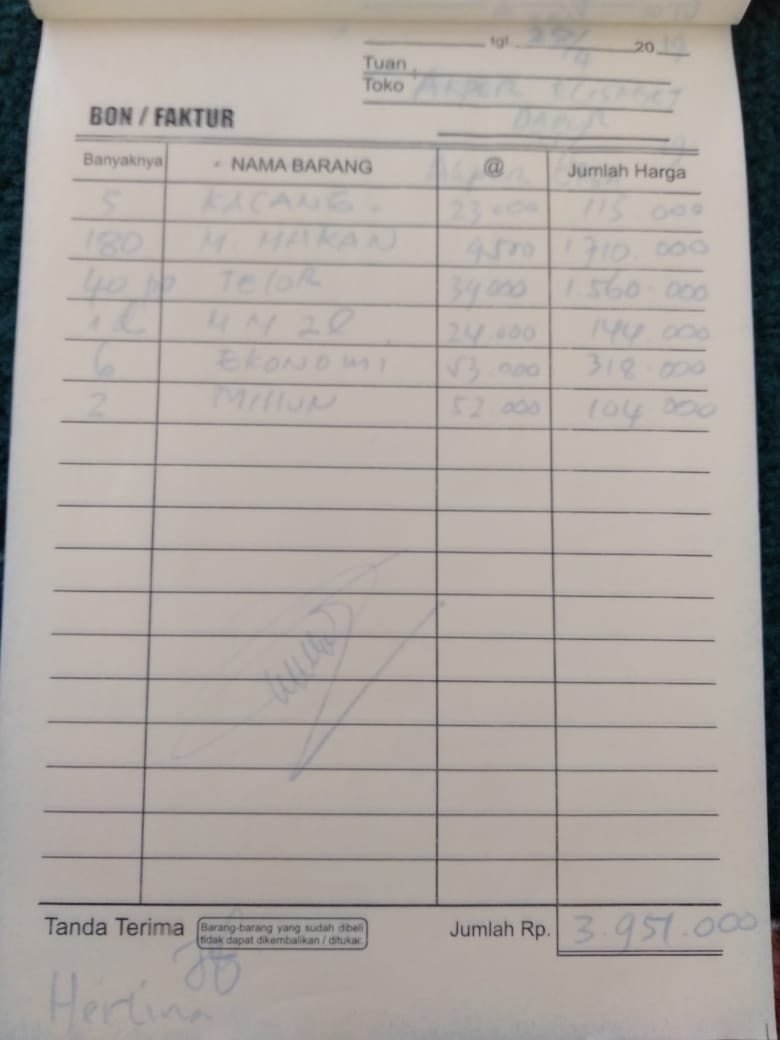 tgl. 20 19
Tuan
Toko AKPER ELISABET
DAPUR
BON / FAKTUR
Banyaknya NAMA BARANG @ Jumlah Harga
5 KACANG - 23.000 115.000
180 M. MAKAN 9500 1710.000
40 pp TELOR 39000 1.560.000
MM 2l 24.000 144.000
6 EKONOMI 53.000 318.000
2 MIHUN 52.000 104.000
Tanda Terima Barang-barang yang sudah dibeli Jumlah Rp. 3.951.000
tidak dapat dikembalikan / ditukar.
Herlina